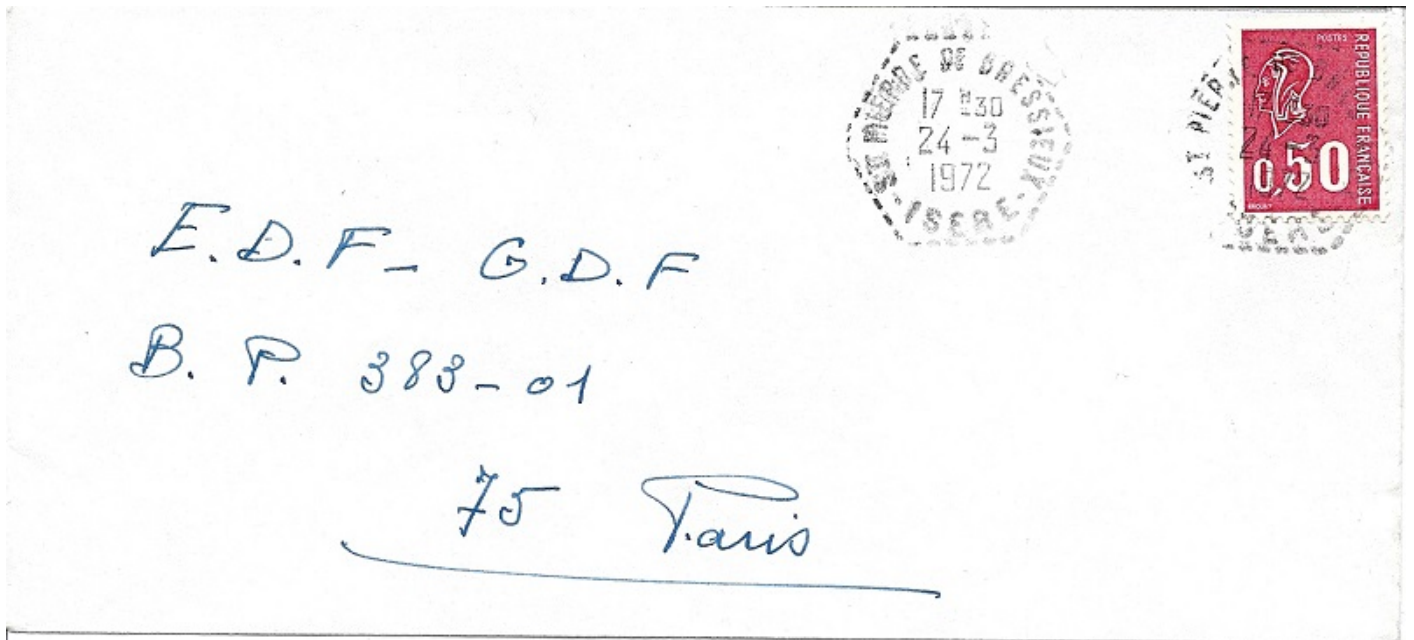 ST PIERRE DE BRESSIEUX
17 H30
24 - 3
1972
- ISERE -
ST PIER
24 - 3
POSTES
REPUBLIQUE FRANCAISE
0,50
E.D.F - G.D.F
B. P. 383 - 01
75 Paris